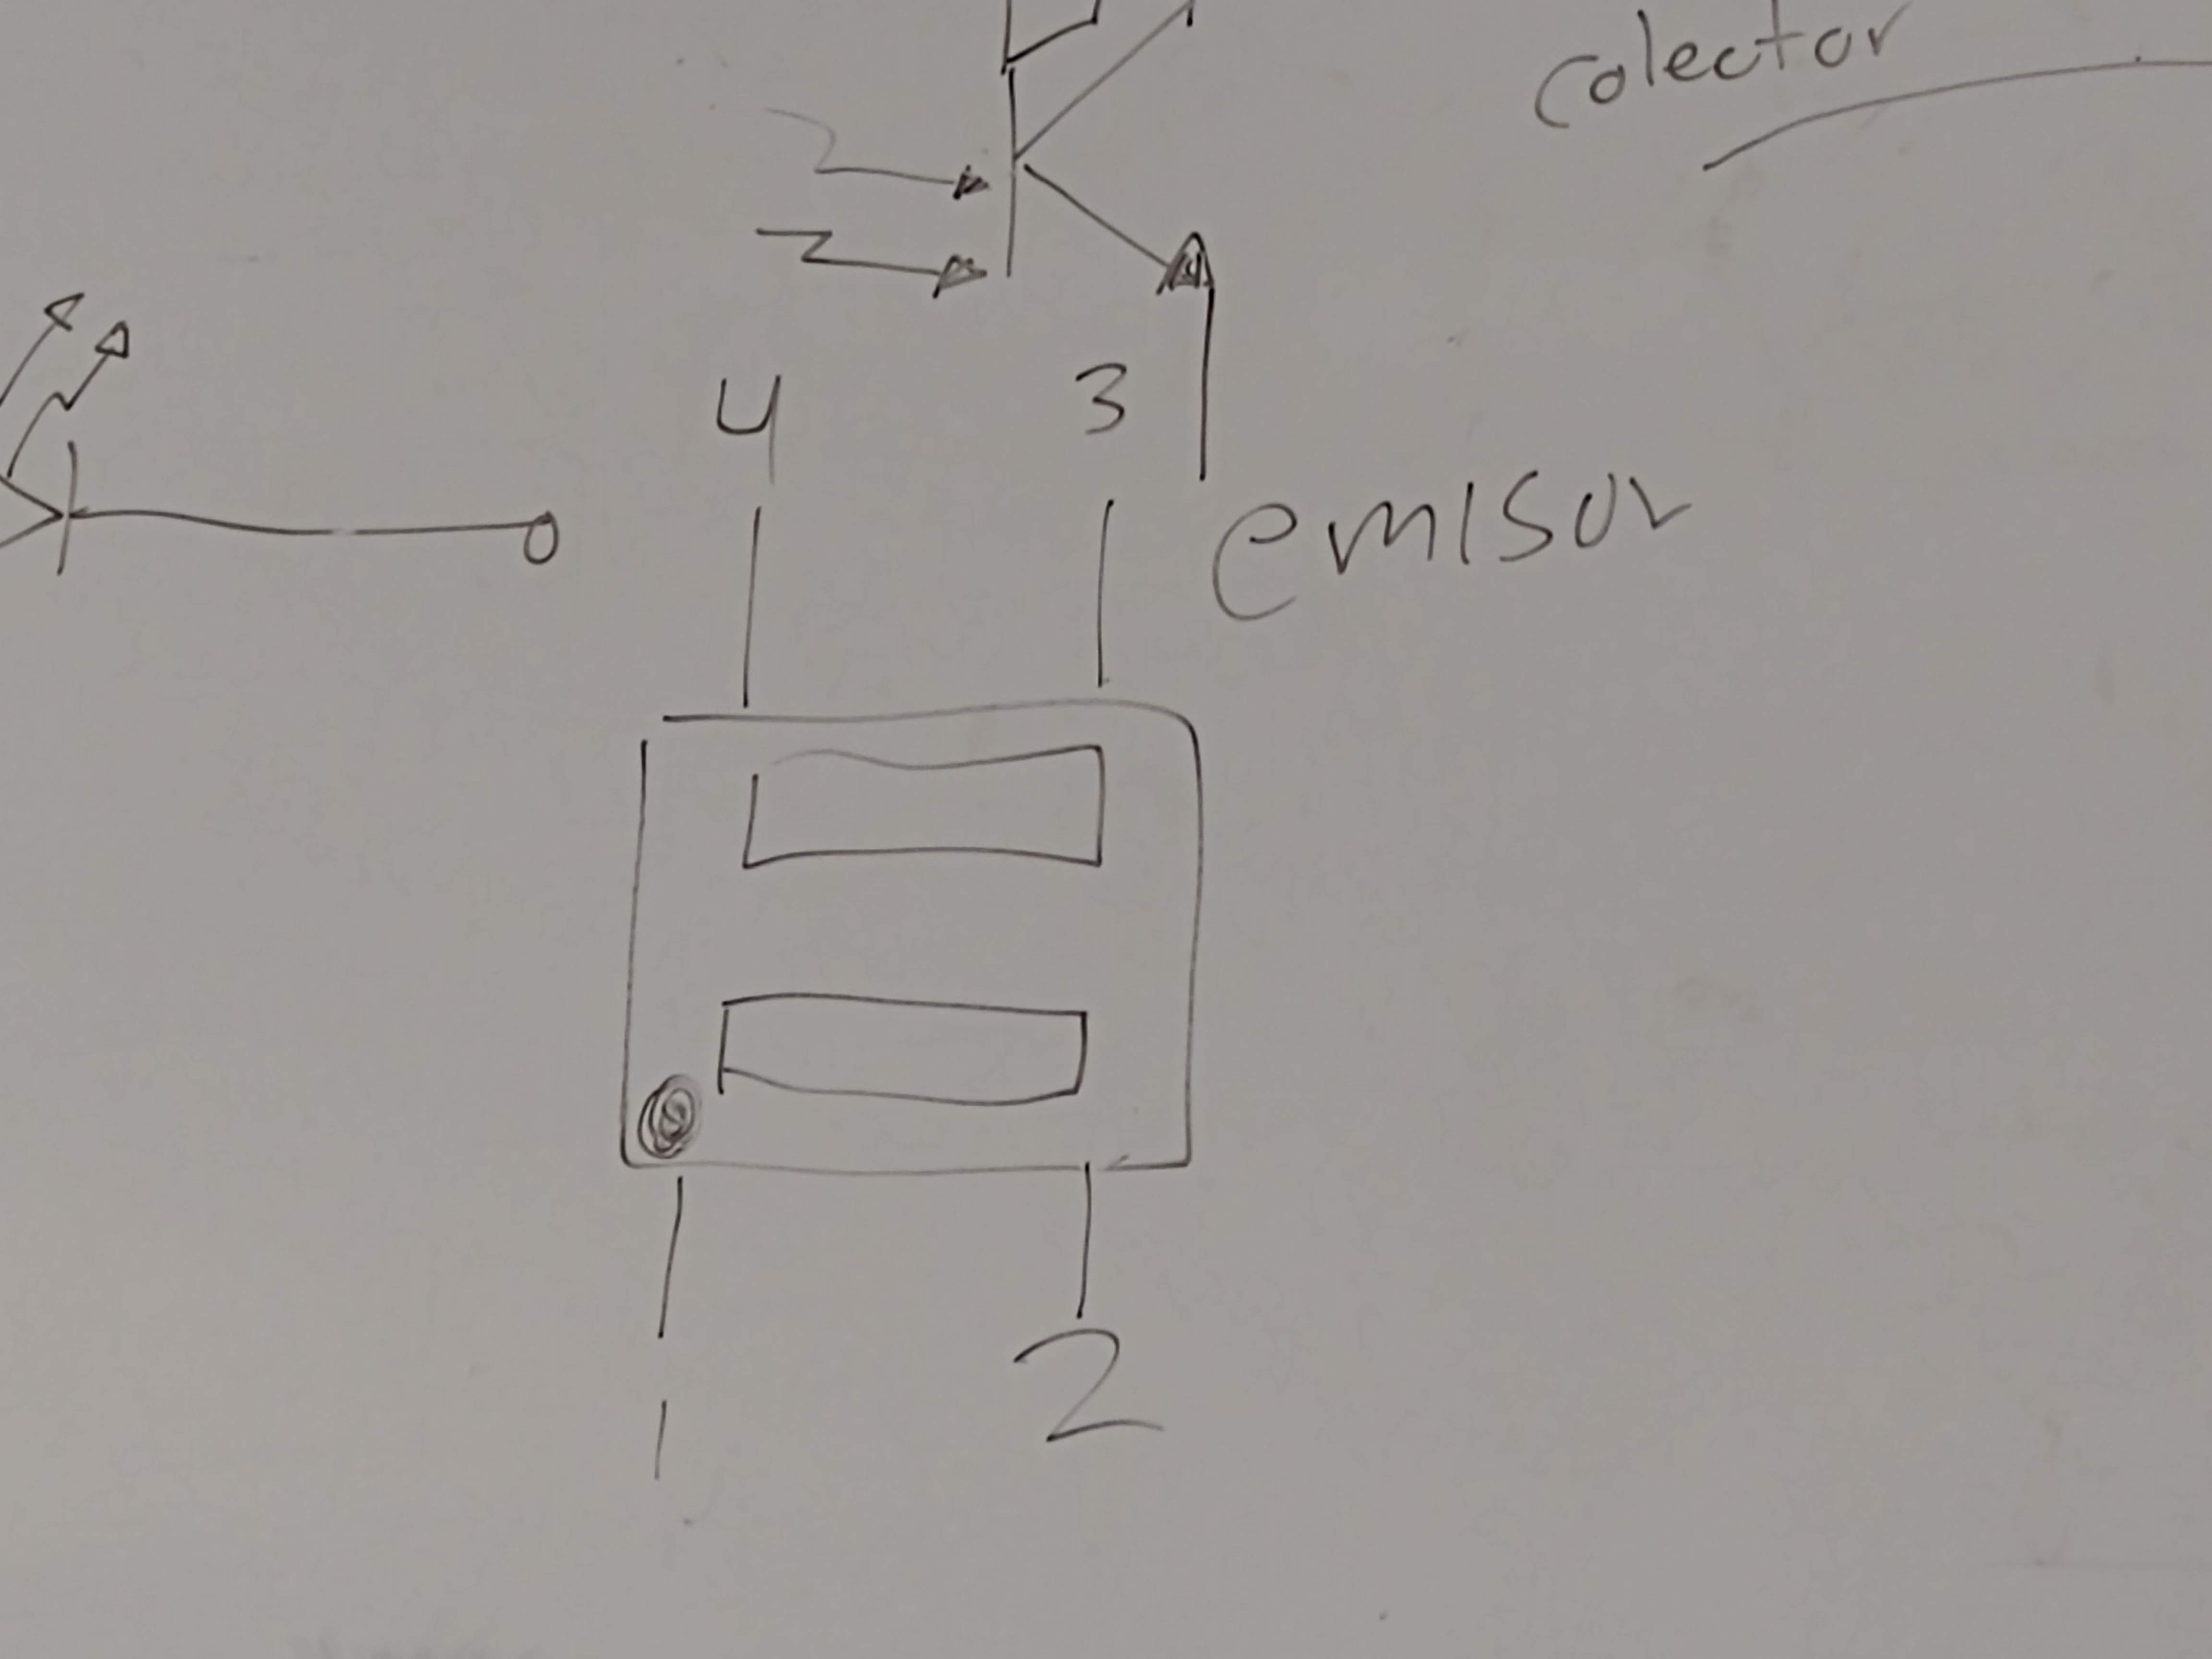 colector
4 3
emisor
1 2